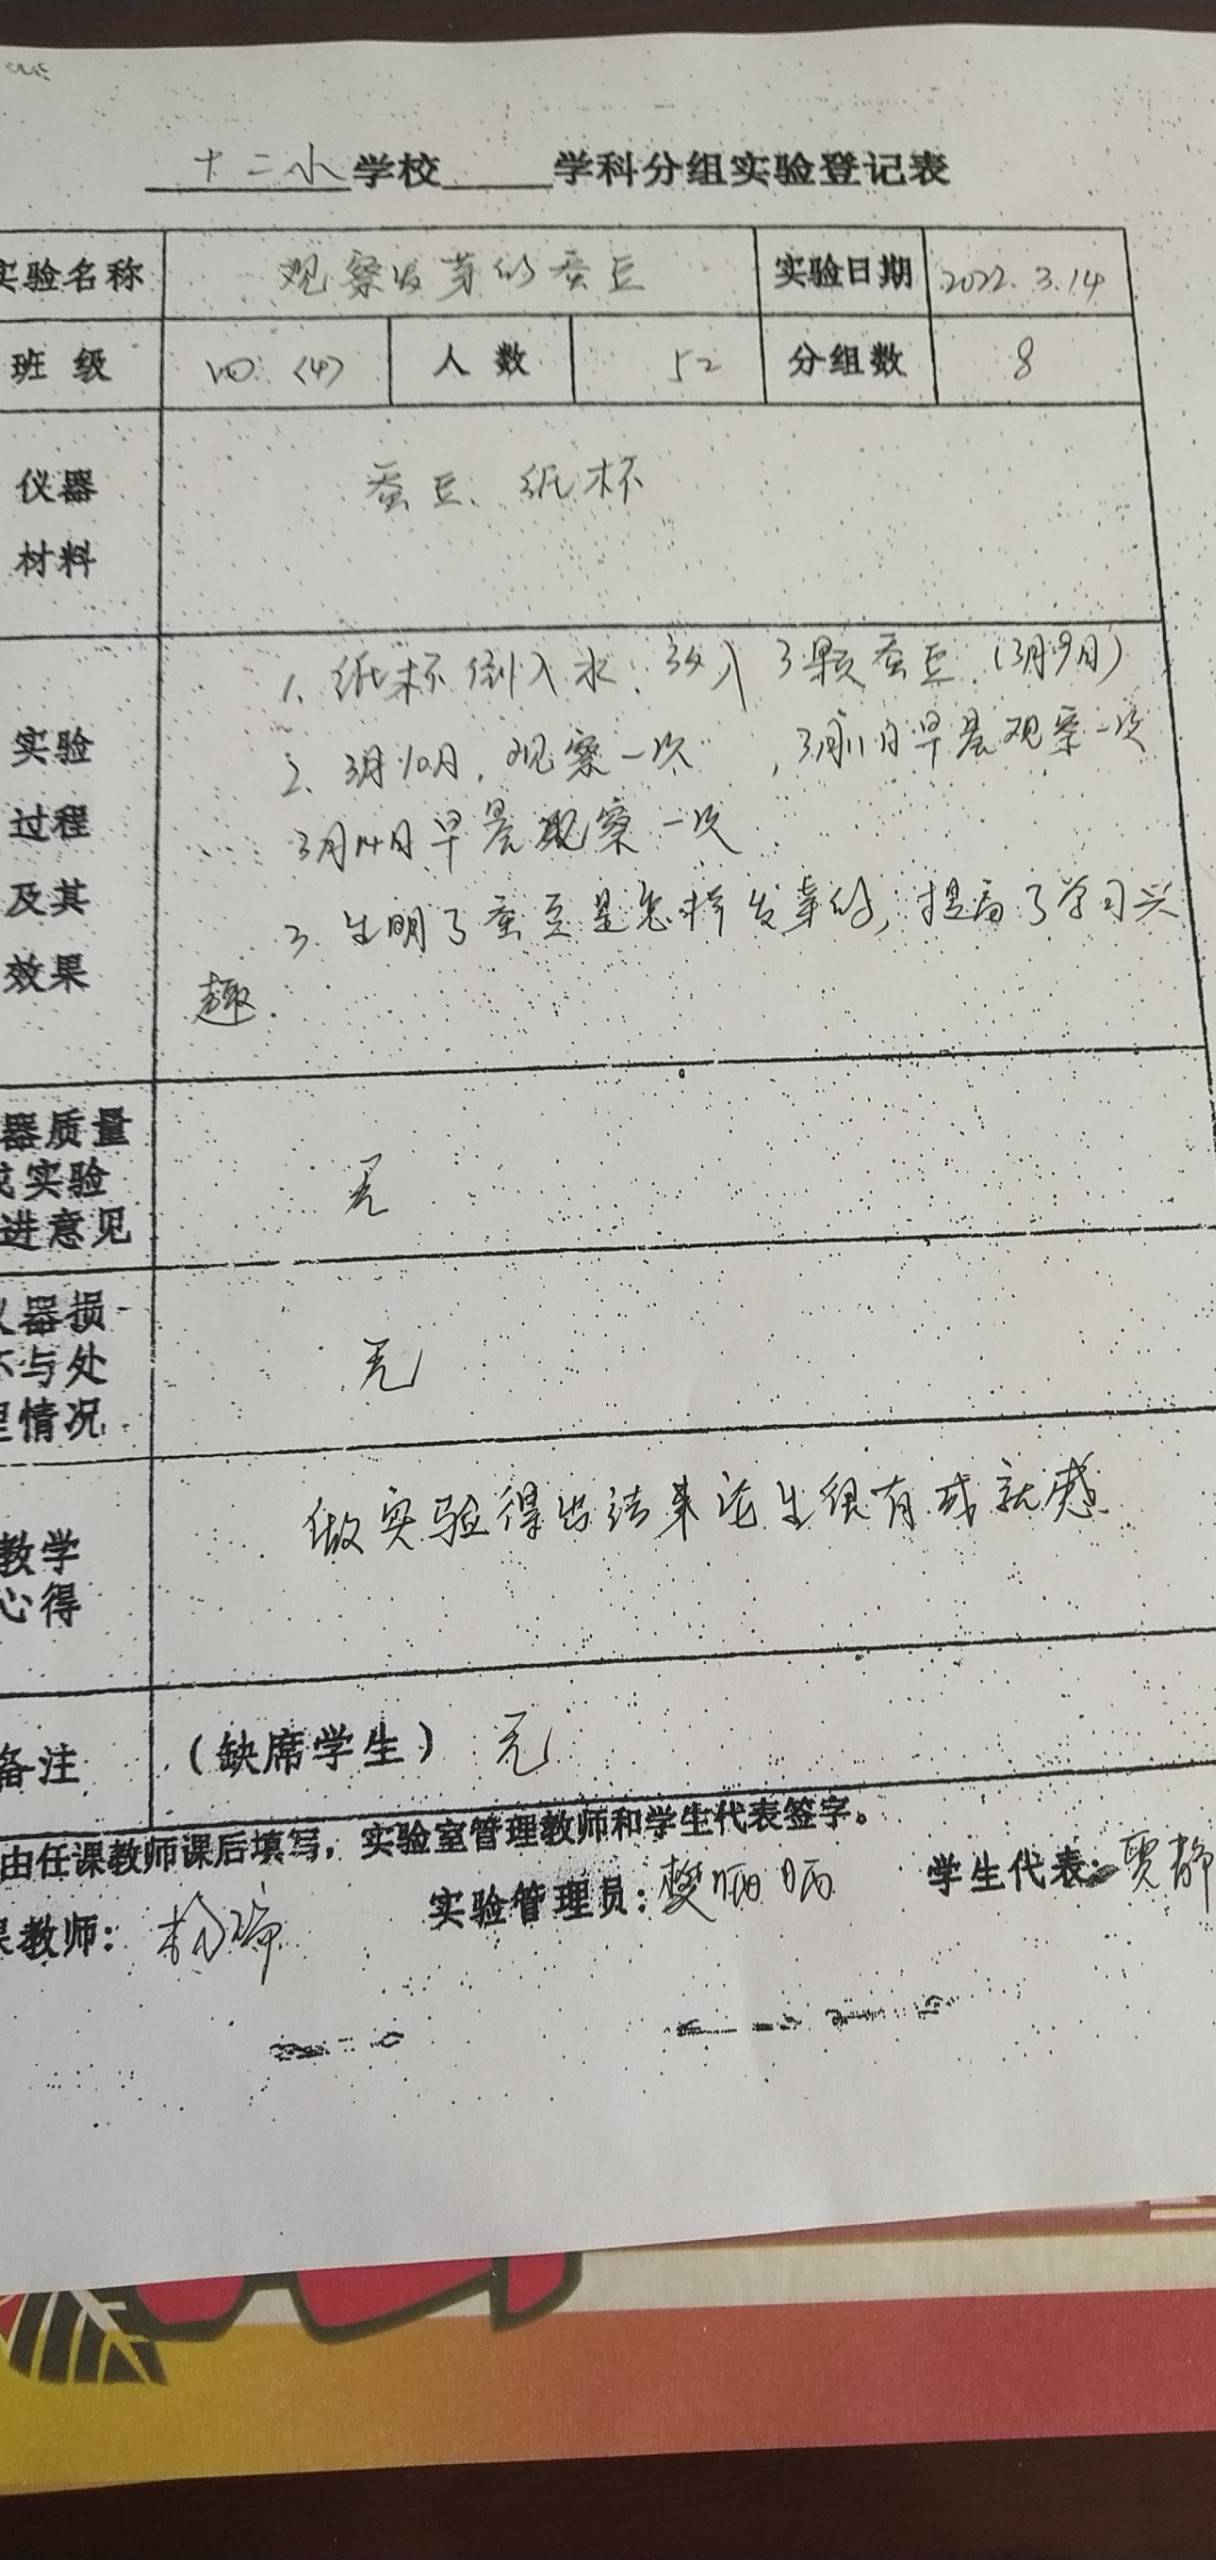 十二小学校 学科分组实验登记表
实验名称 观察发芽的蚕豆 实验日期 2022.3.14
班 级 四 (4) 人 数 52 分组数 8
仪器
材料
蚕豆、纸杯
实验
过程
及其
效果
1、纸杯倒入水，放入3颗蚕豆.(3月9日)
2、3月10日，观察一次 ，3月11日早晨观察一次
3月14日早晨观察一次
3、生明了蚕豆是怎样发芽的，提高了学习兴
趣.
器质量
实验
进意见
无
器损
与处
情况
无
教学
心得
做实验得出结果论生很有成就感
备注 (缺席学生) 无
由任课教师课后填写，实验室管理教师和学生代表签字。
教师： 实验管理员：樊晒晒 学生代表：贾静